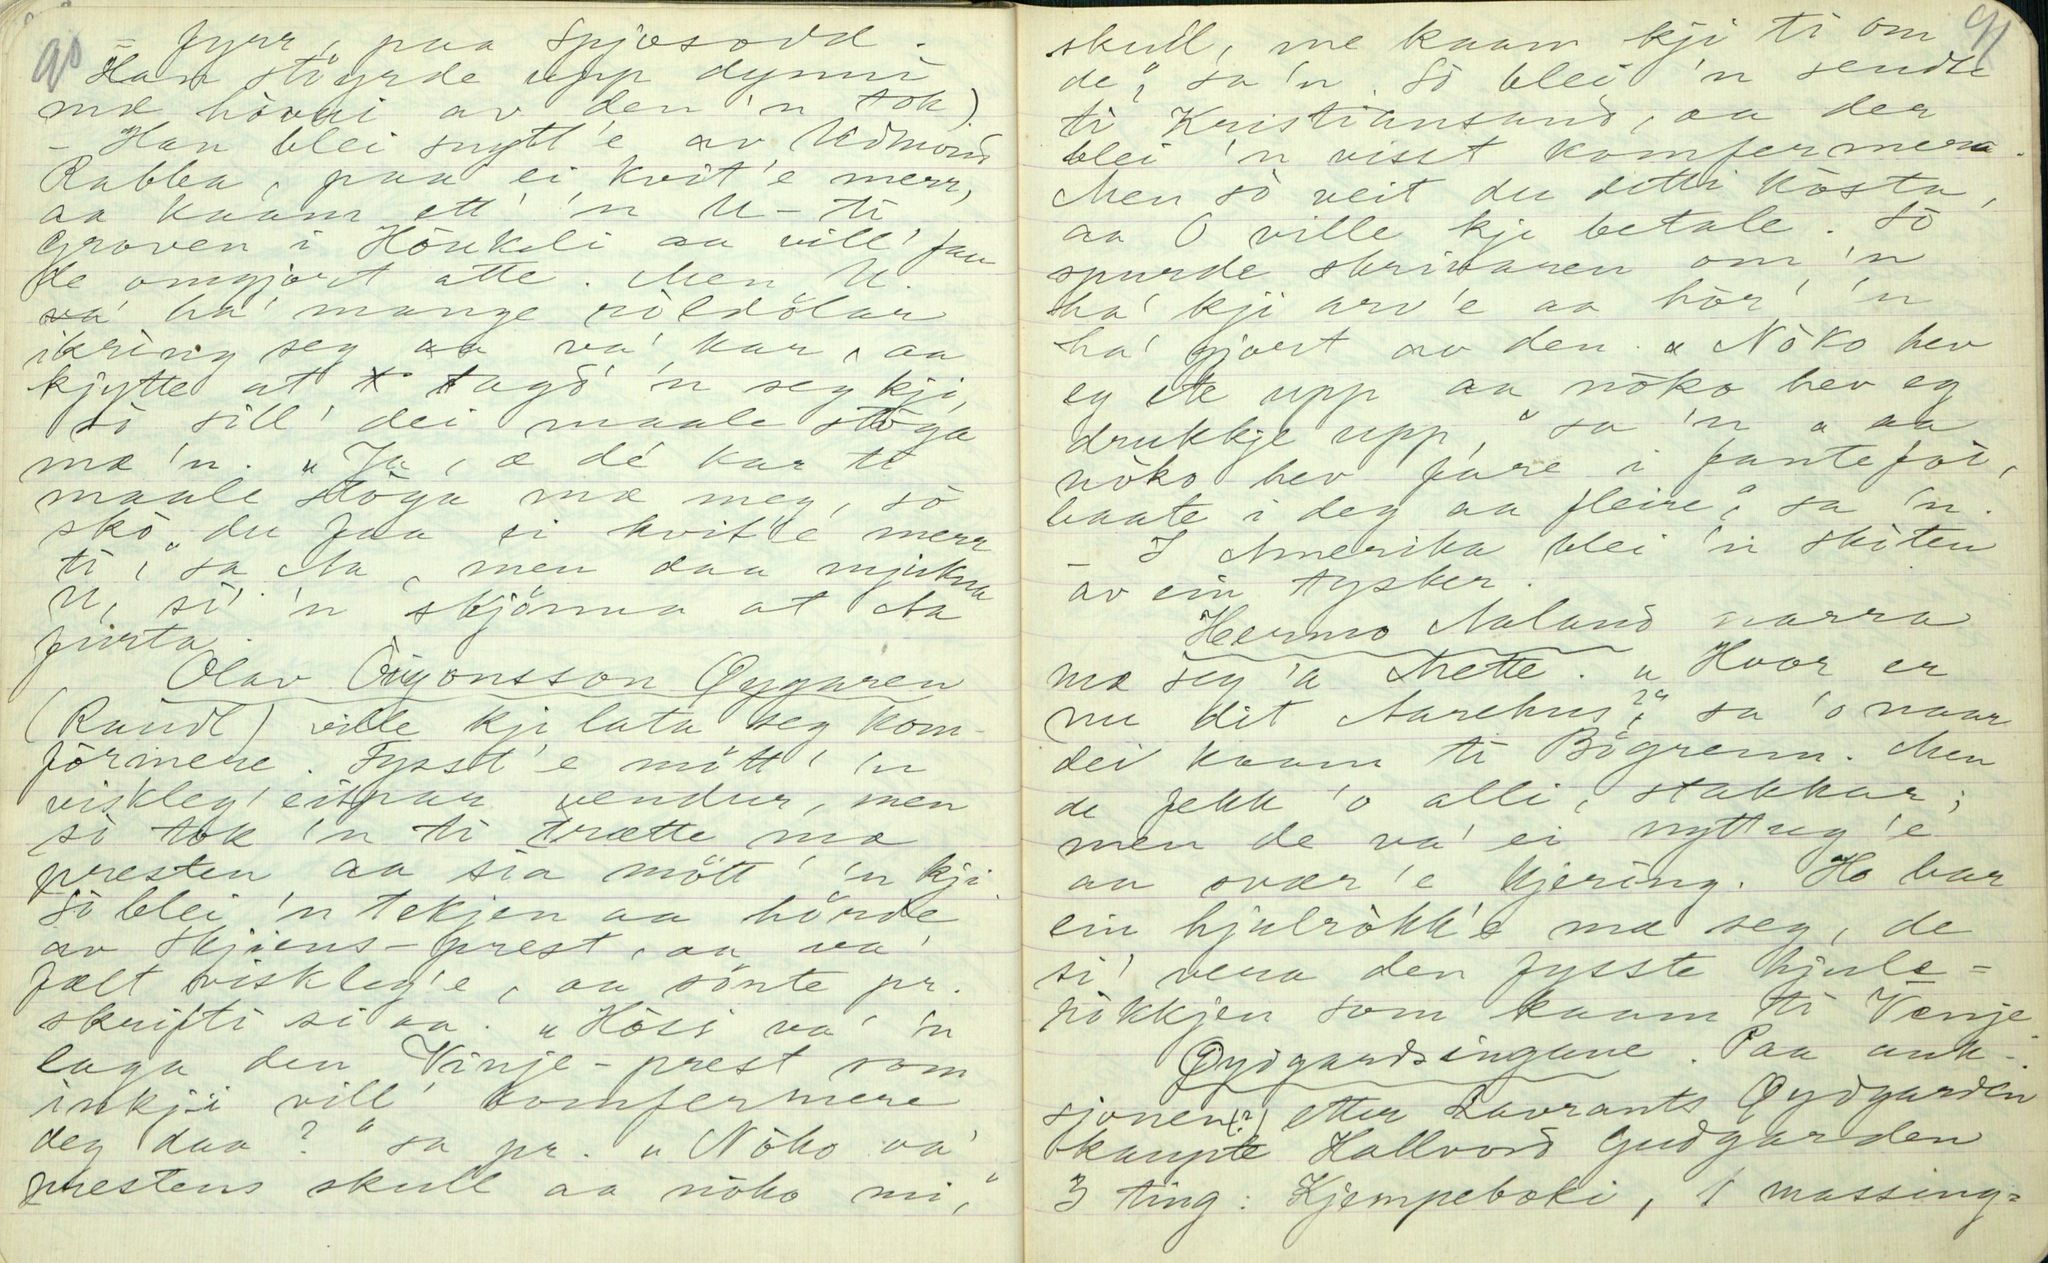 90
– fyrr, paa Spjosodd.
Han stöyrde upp dynni
mæ hövdi av den 'n tok)
– Han blei snytt'e av Udmond
Rabba, paa ei kvit'e merr,
aa kaam ett' 'n U– ti
Groven i Höukeli aa vill' faa
de omgjort atte. Men U.
ha' mange röldölar
ikring seg aa va' kar, aa
kjytte at tagd' 'n seg kji,
sö sill' dei maale stöga
mæ 'n. „Ja, æ dé kar te
maale stöga mæ meg, sö
skö du faa ei kvit'e merr
ti," sa Aa, men daa mjukna
U, si' 'n skjönna at Aa
furta.
Olav Öygonsson Öygaren
(Raudl) ville kji lata seg kom-
förmere. Fysst'e mött' 'n
viskleg' eitpar vendur, men
sö tok 'n ti trætte mæ
presten aa sia mött' 'n kji.
Sö blei 'n tekjen aa hörde
av Skjiens-prest, aa va'
fælt viskleg'e, aa sönte pr.
skrifti si aa. „Höss va' 'n
laga den Vinje-prest som
inkji vill' komfermere
deg daa?" sa pr. „Nöko va'
prestens skull aa nöko mi,"
91
skull, me kaam kji ti om
de," sa 'n. Sö blei 'n sendte
ti Kristiansand, aa der
blei 'n visst komfermera.
Men sö veit du ditti kösta,
aa O ville kje betale. Sö
spurde skrivaren om 'n
ha' kji arv'e aa hör' 'n
ha' gjort av den. „Nöko hev
eg ete upp aa nöko hev eg
drukkje upp," sa 'n „aa
nöko hev fare i fanteföi,
baate i deg aa fleire," sa 'n.
– I Amerika blei 'n skiten
av ein tysker.
Hermo Aaland narra
mæ seg 'a Mette. „Hvor er
nu dit Aarehus?" sa 'o naar
dei kaam ti Bögrenn. Men
de fekk 'o alli, stakkar;
men de va' ei nyttug'e
aa svær'e kjering. Ho bar
ein hjulrökk'e mæ seg, de
si' vera den fysste hjule-
rökkjen som kaam ti Vinje.
Öydgardsingane. Paa auk-
sjonen(?) etter Lavrants Öydgarden
kaupte Hallvord Gudgarden
3 ting: Kjempeboki, 1 massing-